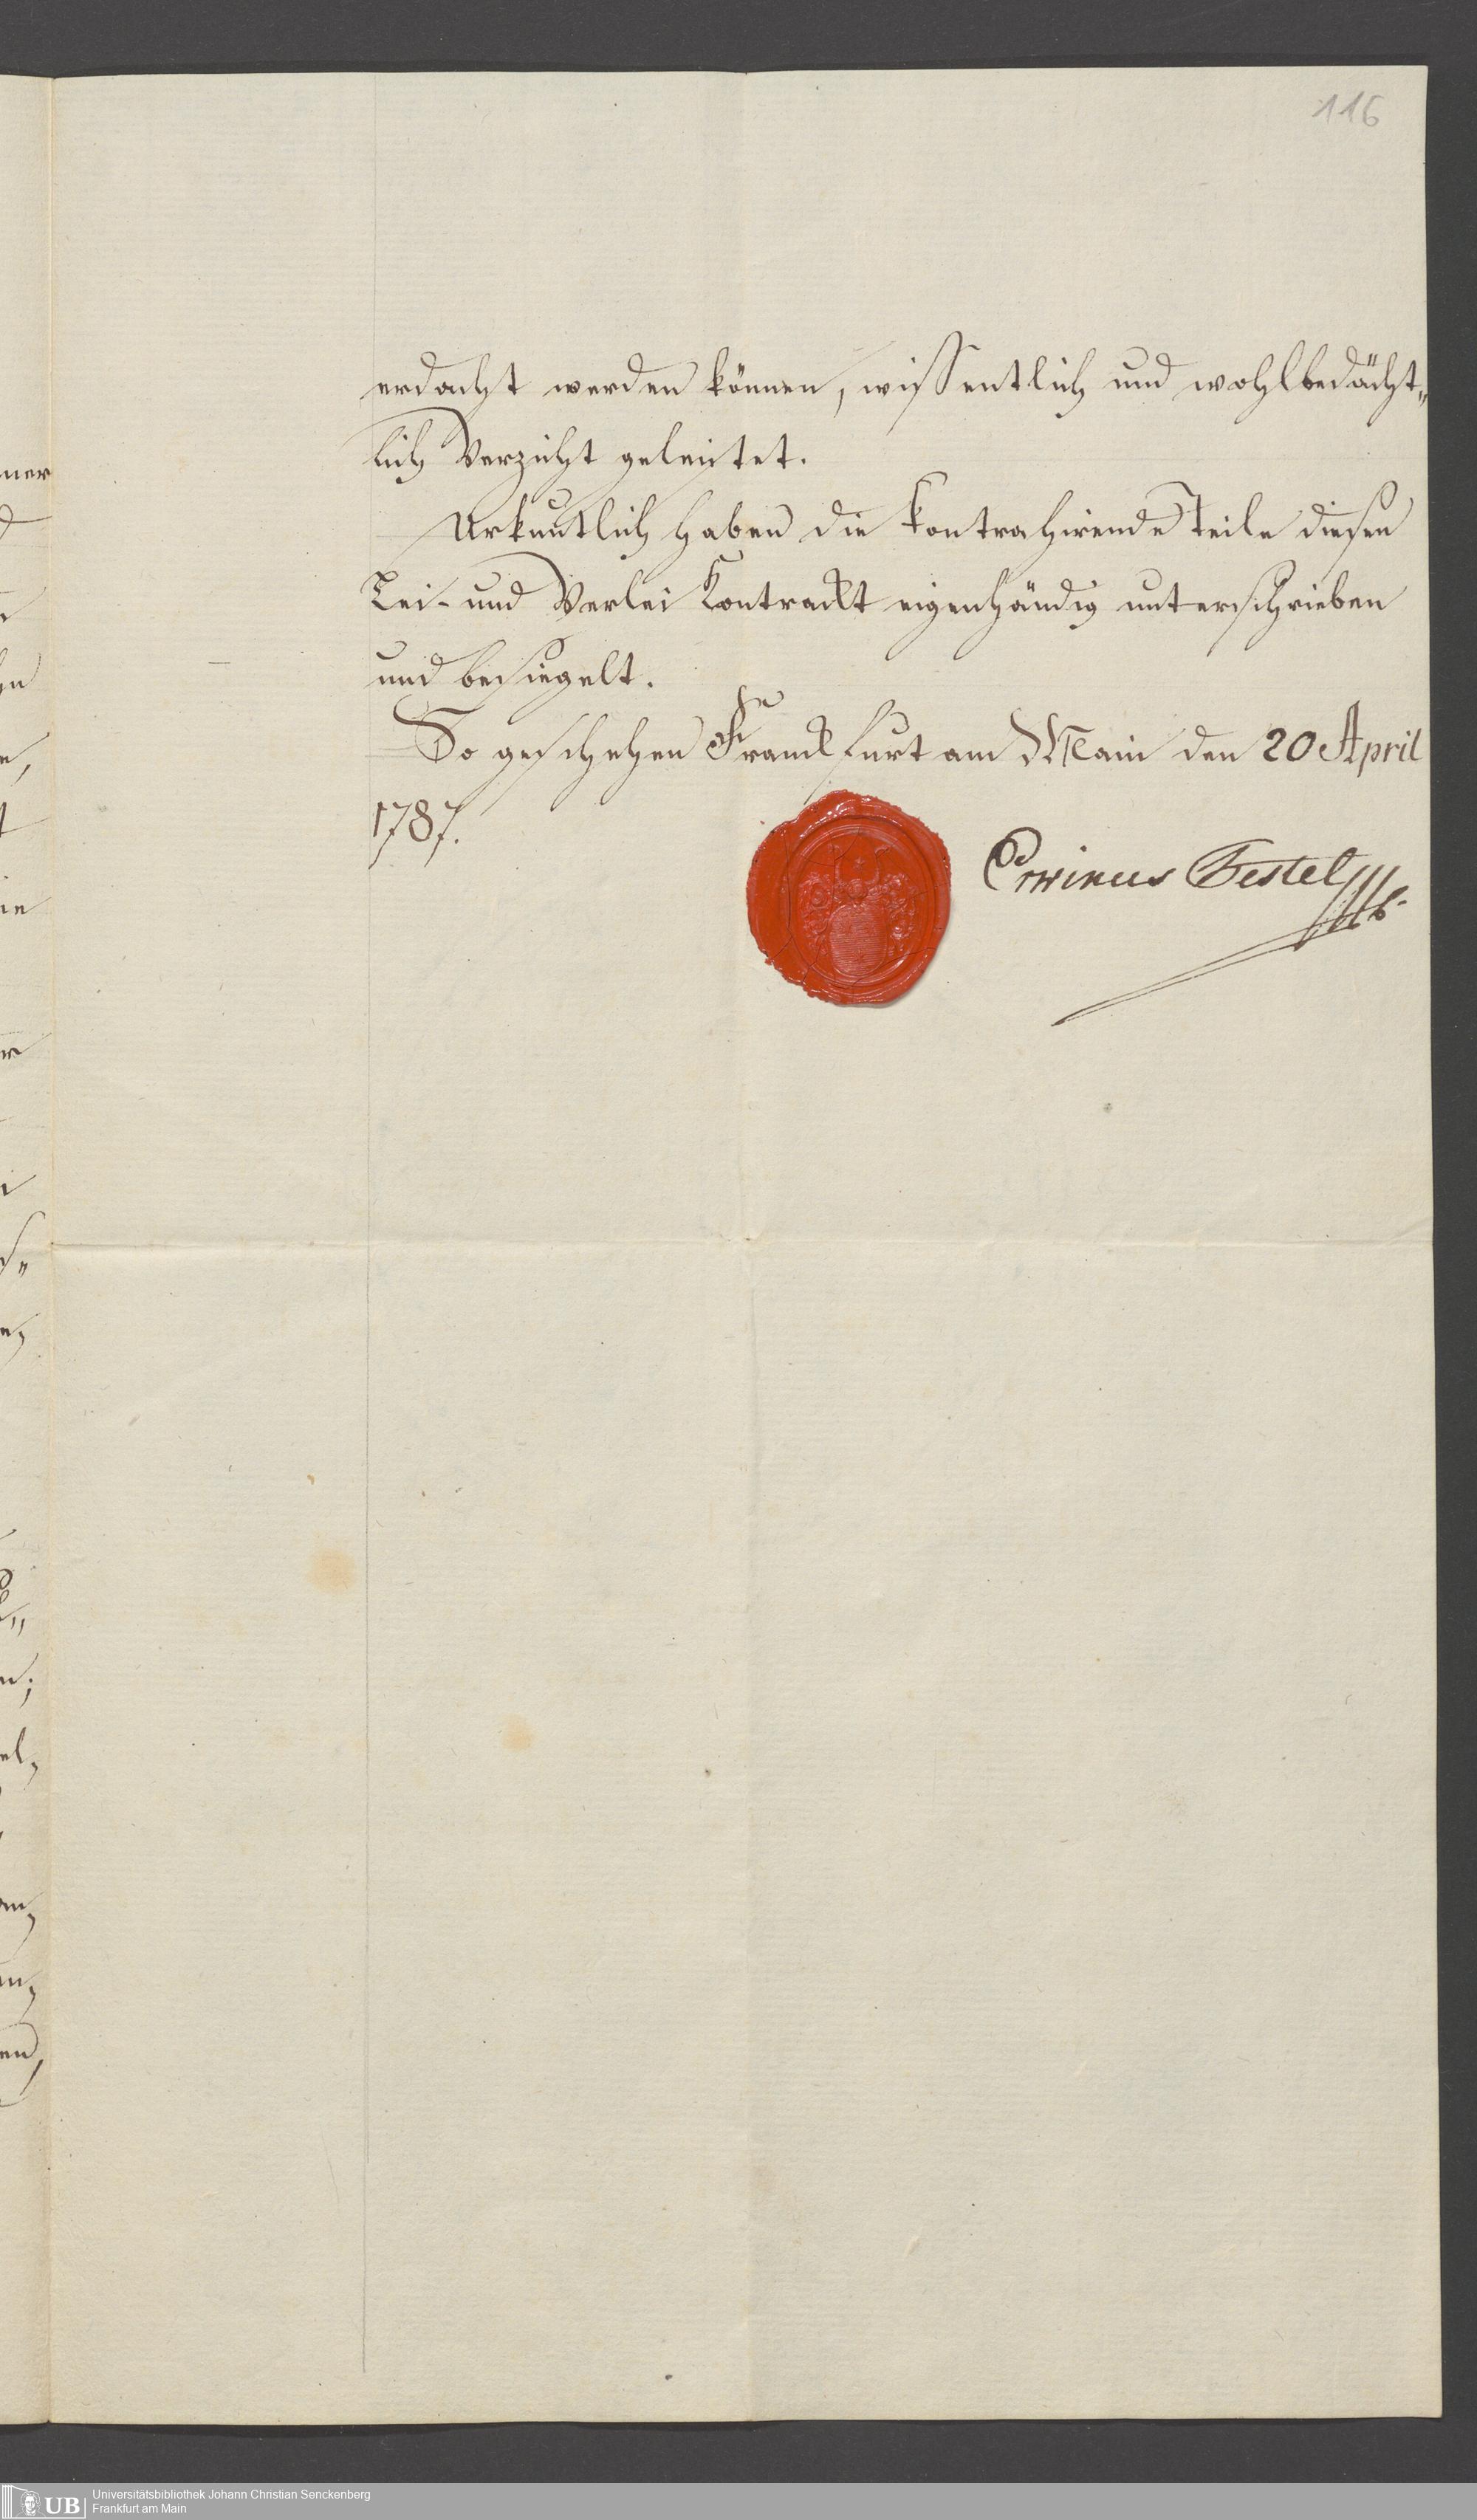 116
erdacht werden können, wissentlich und wohlbedächt„
lich Verzicht geleistet.
Urkuntlich haben die kontrahirende Teile diesen
Lei- und Verlei Kontrackt eigenhändig unterschrieben
und besiegelt.
So geschehen zu Franckfurt am Main den 20 April
1787.
Corvinus Festel
UB Universitätsbibliothek Johann Christian Senckenberg
Frankfurt am Main